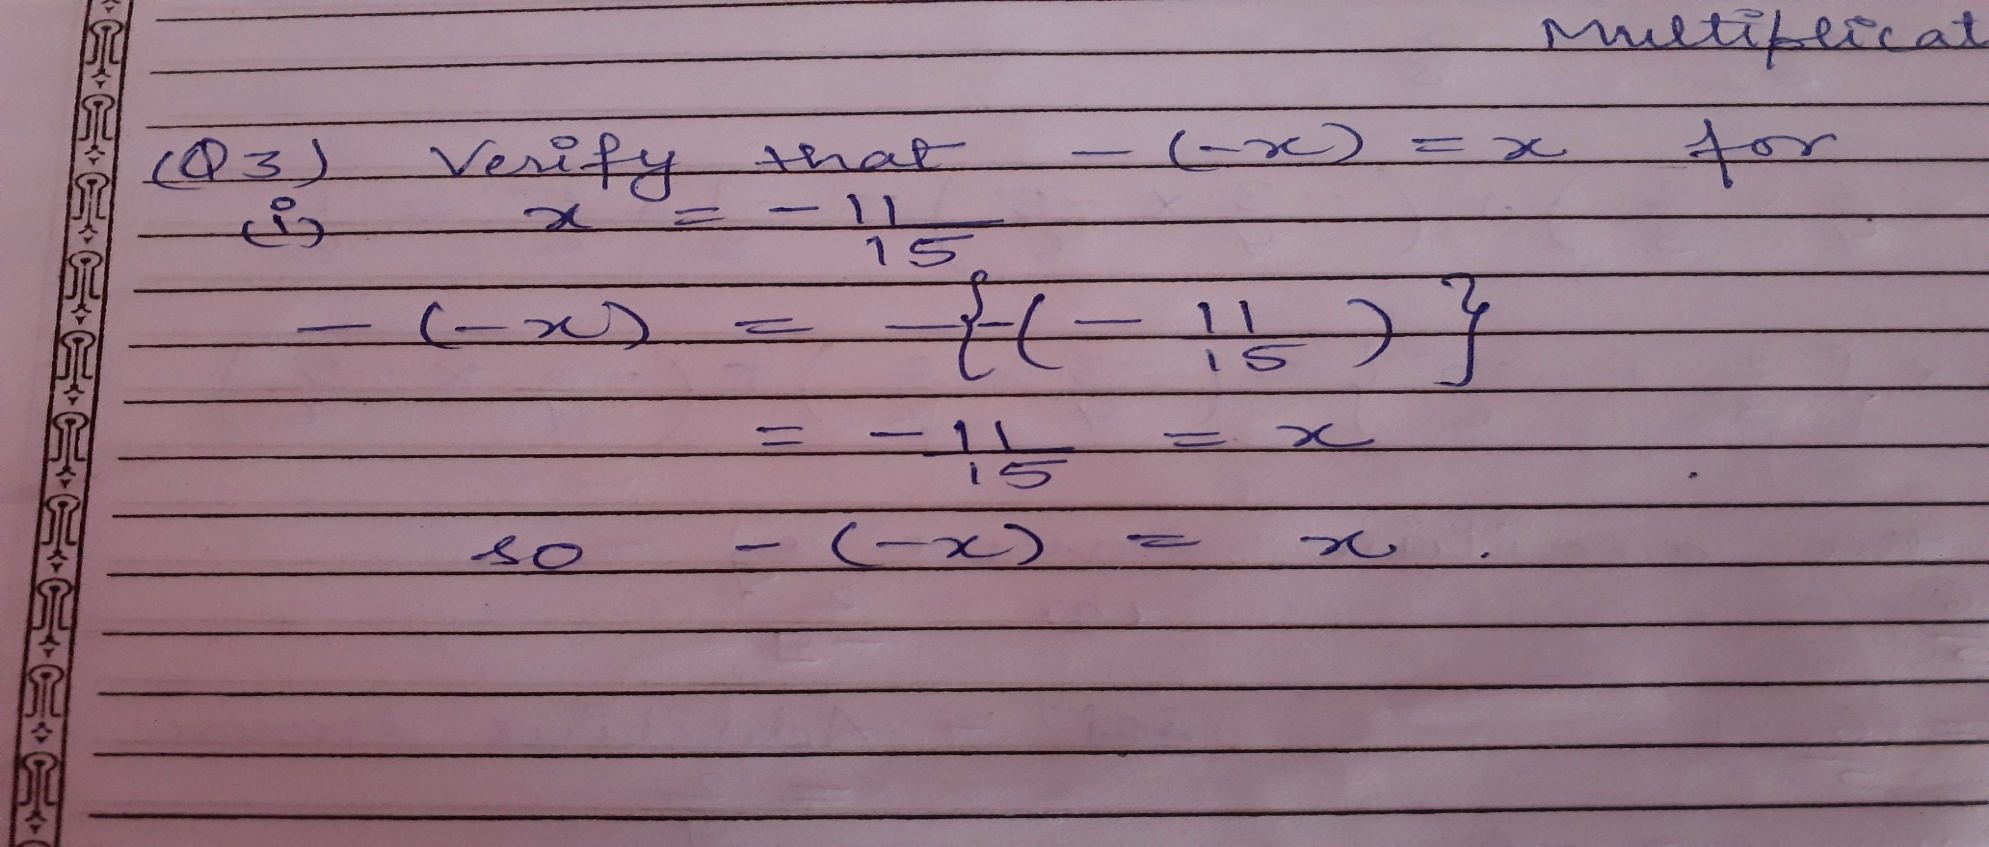 Multiplicat
(Q3) Verify that - (-x) = x for
(i) x = -11/15
- (-x) = -{-(-11/15)}
= -11/15 = x
so - (-x) = x.